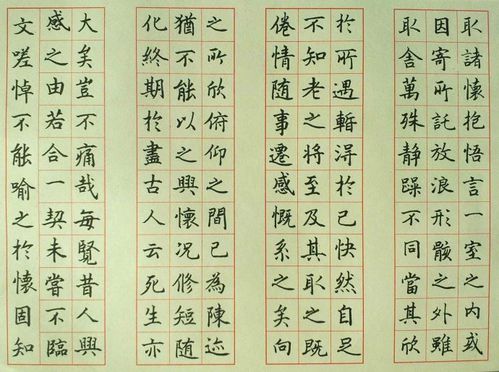 取諸懷抱悟言一室之内或
因寄所託放浪形骸之外雖
取舍萬殊静躁不同當其欣
於所遇暫得於己快然自足
不知老之將至及其取之既
倦情随事遷感慨系之矣向
之所欣俯仰之間已為陳迹
猶不能以之興懷况修短随
化終期於盡古人云死生亦
大矣豈不痛哉每覽昔人興
感之由若合一契未嘗不臨
文嗟悼不能喻之於懷固知